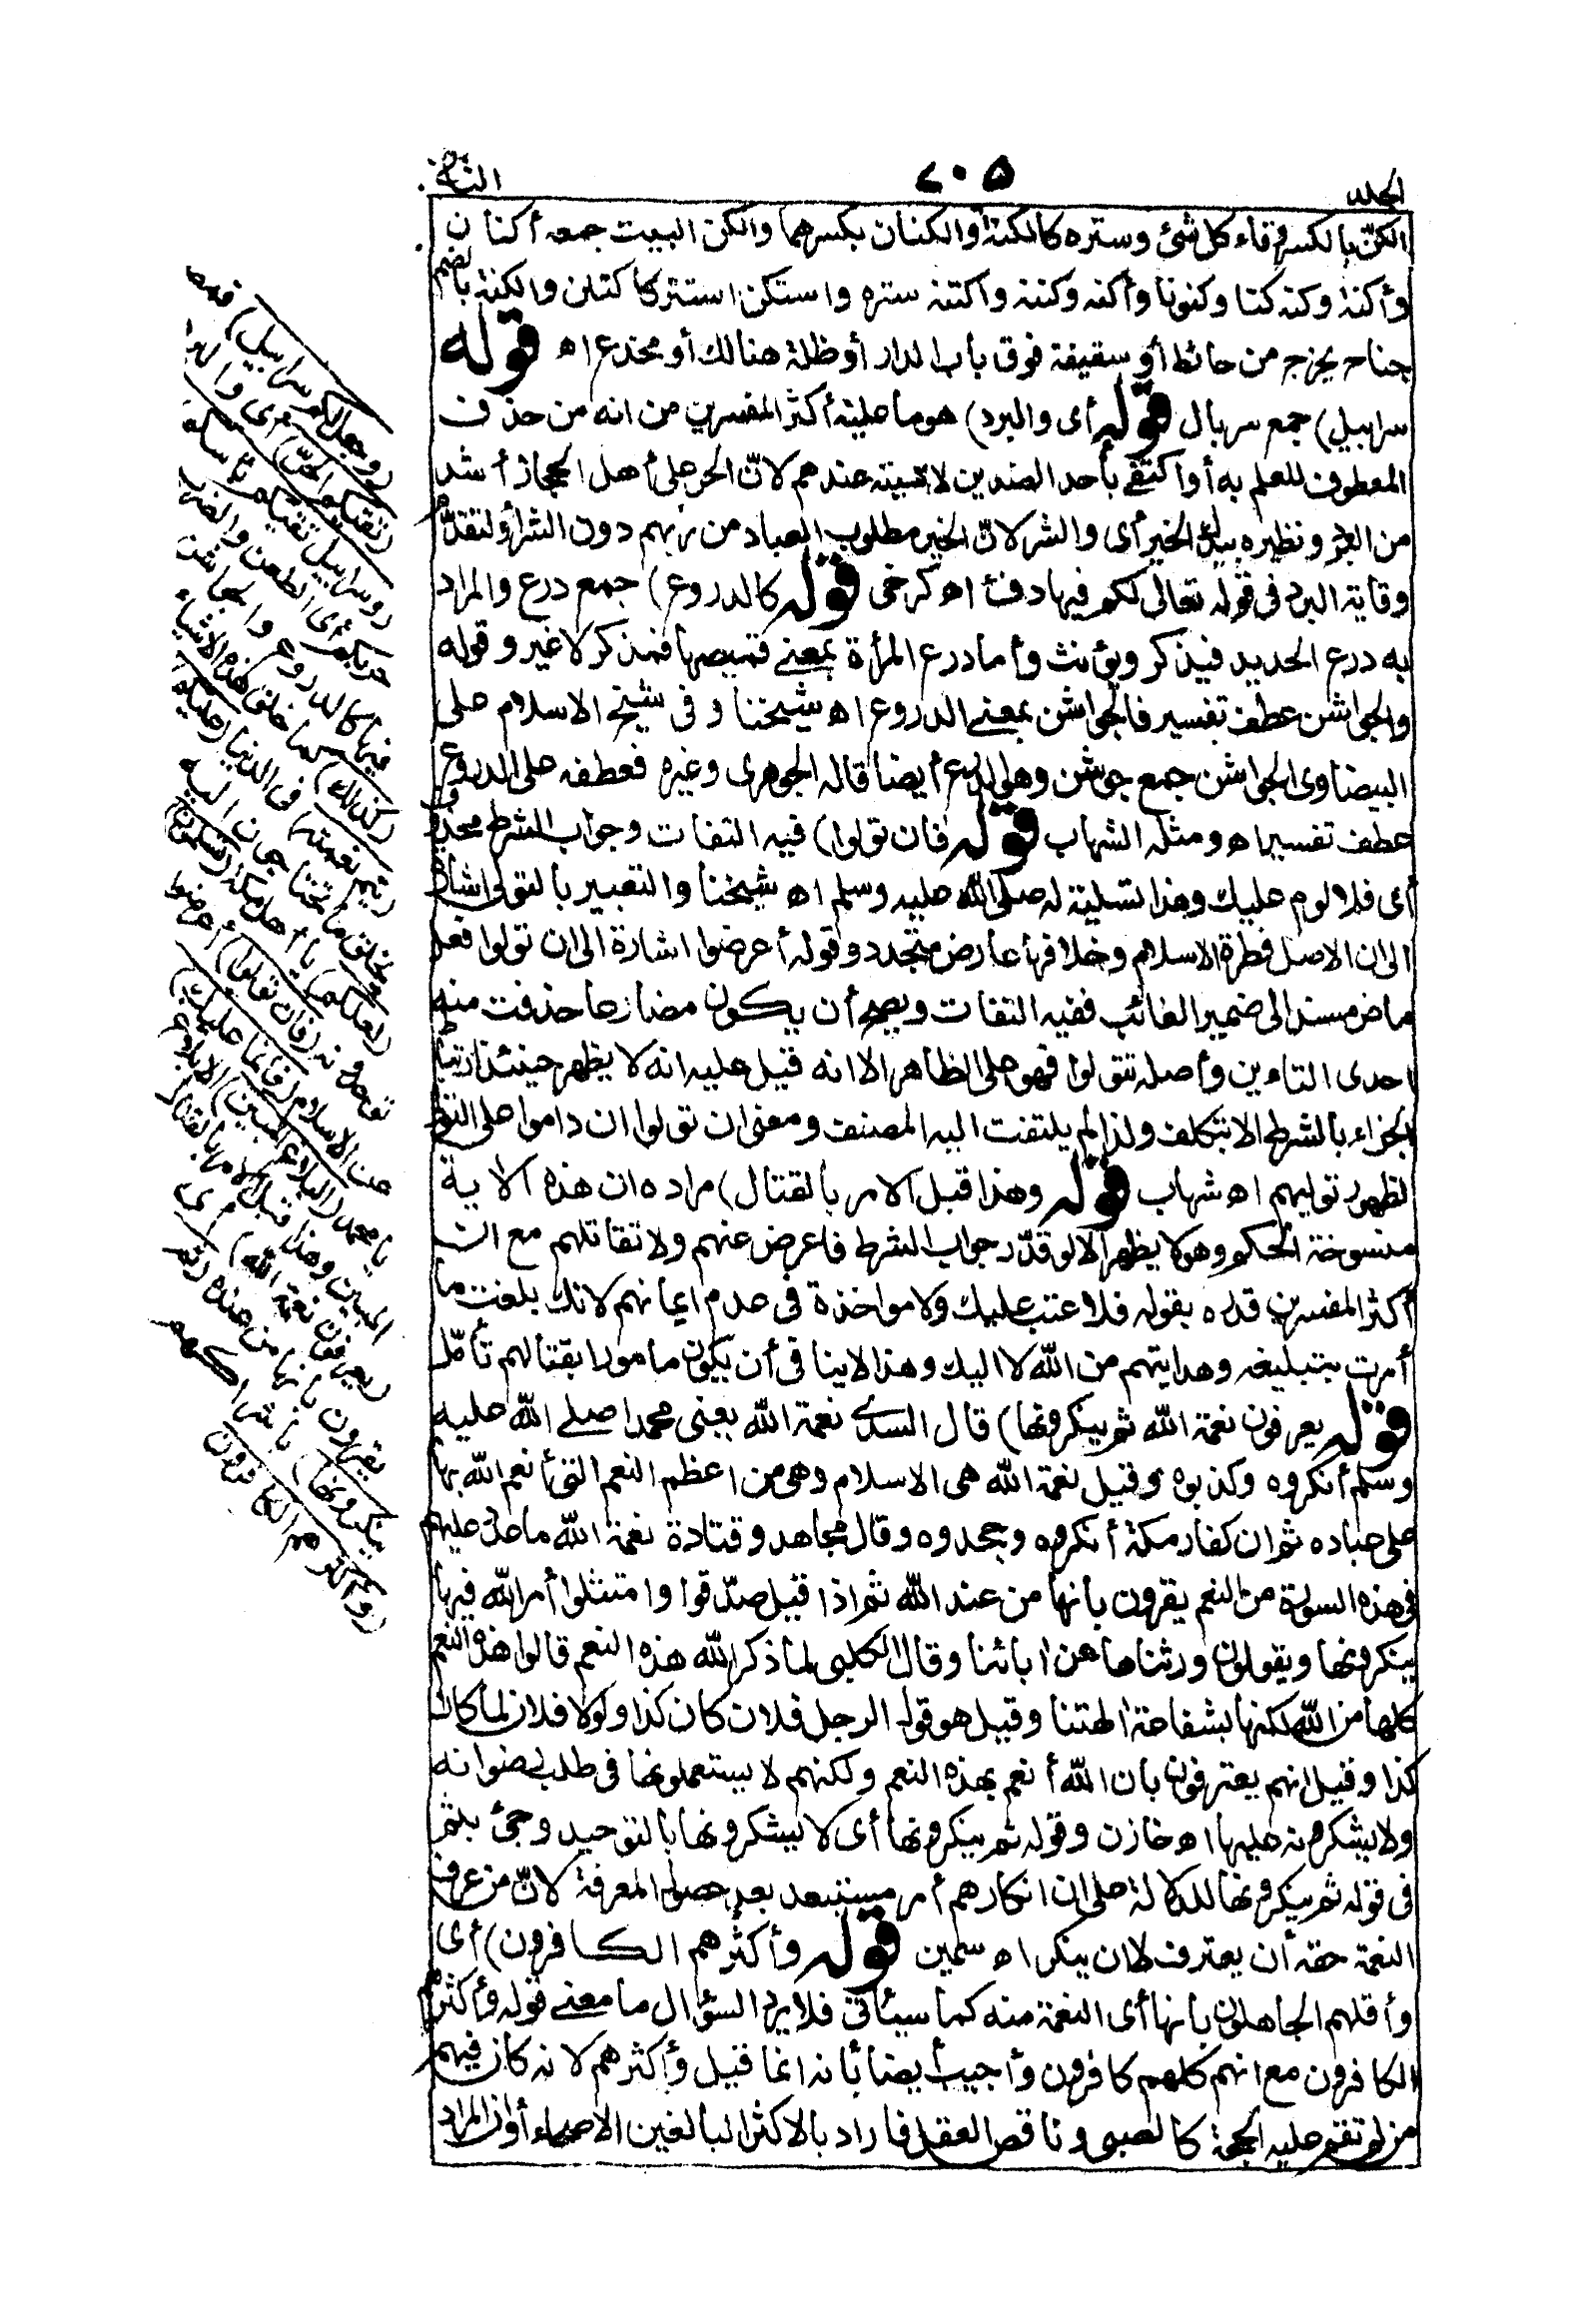 الجلد
٢٠٥
الثانى
الكنّ بالكسر وقاء كل شئ وستره كالكنة والكنان بكسرهما والكن البيت جمعه أكنان
وأكنة وكنه كنا وكنونا وأكنه وكننه واكتنه ستره واستكن استتر كاكتن والكنة بالضم
جناح يخرج من حائط أو سقيفة فوق باب الدار أو ظلة هنالك أو مخدع اه قوله
سرابيل) جمع سربال قوله أى والبرد) هو ما عليه أكثر المفسرين من انه من حذف
المعطوف للعلم به أو اكتفى بأحد الضدين لاهميته عندهم لانّ الحر على أهل الحجاز أشد
من البرد ونظيره بيدك الخير أى والشر لانّ الخير مطلوب العباد من ربهم دون الشر أو لتقدّم
وقاية البرد فى قوله تعالى لكم فيها دفء اه كرخى قوله كالدروع) جمع درع والمراد
به درع الحديد فيذكر ويؤنث وأما درع المرأة بمعنى قميصها فمذكر لا غير وقوله
والجواشن عطف تفسير فالجواشن بمعنى الدروع اه شيخنا وفى شيخ الاسلام على
البيضاوى الجواشن جمع جوشن وهى الدرع أيضا قاله الجوهرى وغيره فعطفه على الدروع
عطف تفسير اه ومثله الشهاب قوله فان تولوا) فيه التفات وجواب الشرط محذوف
أى فلا لوم عليك وهذا تسلية له صلى الله عليه وسلم اه شيخنا والتعبير بالتولى اشارة
الى ان الاصل فطرة الاسلام وخلافها عارض متجدد وقوله أعرضوا اشارة الى ان تولوا فعل
ماض مسند الى ضمير الغائب ففيه التفات ويصح أن يكون مضارعا حذفت منه
احدى التاءين وأصله تتولوا فهو على الظاهر الا انه قيل عليه انه لا يظهر حينئذ ارتباط
الجزاء بالشرط الا بتكلف ولذا لم يلتفت اليه المصنف ومعنى ان تولوا ان داموا على التولى
لظهور توليهم اه شهاب قوله وهذا قبل الامر بالقتال) مراده ان هذه الاية
منسوخة الحكم وهو لا يظهر الا لو قدّر جواب الشرط فاعرض عنهم ولا تقاتلهم مع ان
أكثر المفسرين قدره بقوله فلا عتب عليك ولا مواخذة فى عدم ايمانهم لانك بلغت ما
أمرت بتبليغه وهدايتهم من الله لا اليك وهذا لا ينافى أن يكون مامورا بقتالهم تأمّل
قوله يعرفون نعمة الله ثم ينكرونها) قال السدى نعمة الله يعنى محمدا صلى الله عليه
وسلم أنكروه وكذبوه وقيل نعمة الله هى الاسلام وهى من اعظم النعم التى أنعم الله بها
على عباده ثم ان كفار مكة أنكروه وجحدوه وقال مجاهد وقتادة نعمة الله ما عدّ عليهم
فى هذه السورة من النعم يقرون بأنها من عند الله ثم اذا قيل صدّقوا وامتثلوا أمر الله فيها
ينكرونها ويقولون ورثناها عن ابائنا وقال الكلبى لما ذكر الله هذه النعم قالوا هذه النعم
كلها من الله لكنها بشفاعة الهتنا وقيل هو قول الرجل فلان كان كذا ولولا فلان لما كان
كذا وقيل انهم يعترفون بان الله أنعم بهذه النعم ولكنهم لا يستعملونها فى طلب رضوانه
ولا يشكرونه عليها اه خازن وقوله ثم ينكرونها أى لا يشكرونها بالتوحيد وجئ بثم
فى قوله ثم ينكرونها للدلالة على ان انكارهم أمر مستبعد بعد حصول المعرفة لانّ من عرف
النعمة حقه أن يعترف لا ان ينكر اه سمين قوله وأكثرهم الكافرون) أى
وأقلهم الجاهلون بأنها أى النعمة منه كما سيأتى فلا يرد السؤال ما معنى قوله وأكثرهم
الكافرون مع انهم كلهم كافرون وأجيب أيضا بأنه انما قيل وأكثرهم لانه كان فيهم
من لم تقم عليه الحجة كالصبى وناقص العقل فاراد بالاكثر البالغين الاصحاء أو ان المراد
(وجعل لكم سرابيل) قمصا
(تقيكم الحرّ) أى والبرد
(وسرابيل تقيكم بأسكم)
حربكم أى الطعن والضرب
فيها كالدروع والجواشن
(كذلك) كما خلق هذه الاشياء
(يتم نعمته) فى الدنيا (عليكم)
بخلق ما تحتاجون اليه
(لعلكم) يا أهل مكة (تسلمون)
توحدونه (فان تولوا) أعرضوا
عن الاسلام (فانما عليك)
يا محمد (البلاغ المبين) الابلاغ
المبين وهذا قبل الامر بالقتال
(يعرفون نعمة الله) أى
يقرون بأنها من عنده (ثم
ينكرونها) باشراكهم
(وأكثرهم الكافرون